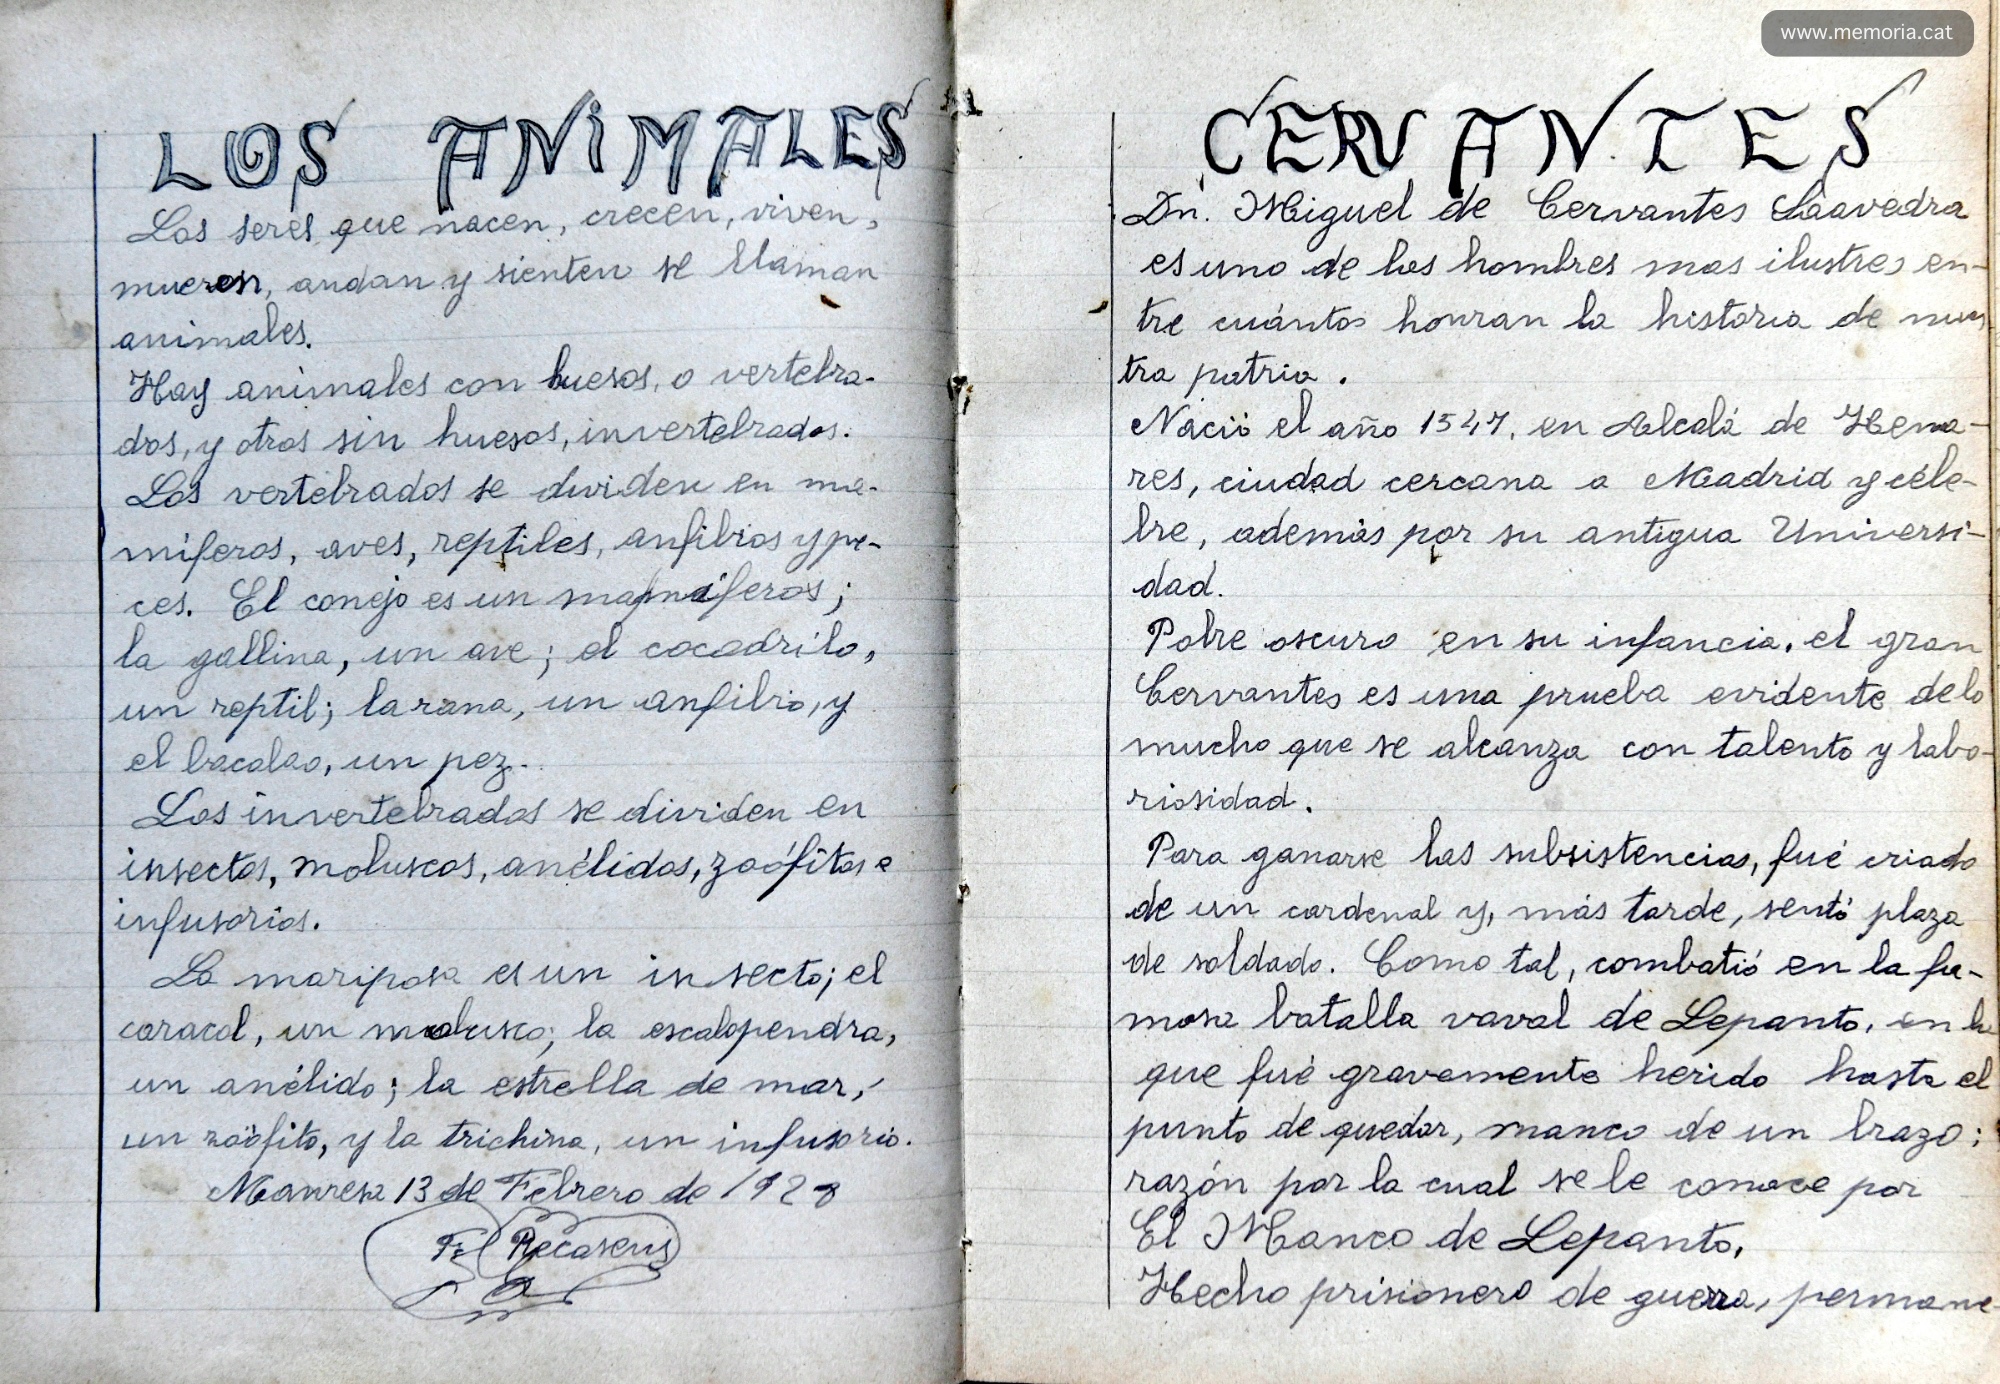 www.memoria.cat
LOS ANIMALES
Los seres que nacen, crecen, viven,
mueren, andan y sienten se llaman
animales.
Hay animales con huesos, o vertebra-
dos, y otros sin huesos, invertebrados.
Los vertebrados se dividen en ma-
míferos, aves, reptiles, anfibios y pe-
ces. El conejo es un mamíferos;
la gallina, un ave; el cocodrilo,
un reptil; la rana, un anfibio, y
el bacalao, un pez.
Los invertebrados se dividen en
insectos, moluscos, anélidos, zoófitos e
infusorios.
La mariposa es un insecto; el
caracol, un molusco; la escalopendra,
un anélido; la estrella de mar,
un zoófito, y la trichina, un infusorio.
Manresa 13 de Febrero de 1928
F. Recasens
CERVANTES
Dn. Miguel de Cervantes Saavedra
es uno de los hombres mas ilustres en-
tre cuántos honran la historia de nues
tra patria.
Nació el año 1547, en Alcalá de Hena-
res, ciudad cercana a Madrid y céle-
bre, además por su antigua Universi-
dad.
Pobre oscuro en su infancia, el gran
Cervantes es una prueba evidente de lo
mucho que se alcanza con talento y labo-
riosidad.
Para ganarse las subsistencias, fué criado
de un cardenal y, más tarde, sentó plaza
de soldado. Como tal, combatió en la fa-
mosa batalla vaval de Lepanto, en la
que fué gravemente herido hasta el
punto de quedar, manco de un brazo;
razón por la cual se le conoce por
El Manco de Lepanto,
Hecho prisionero de guerra, permane-